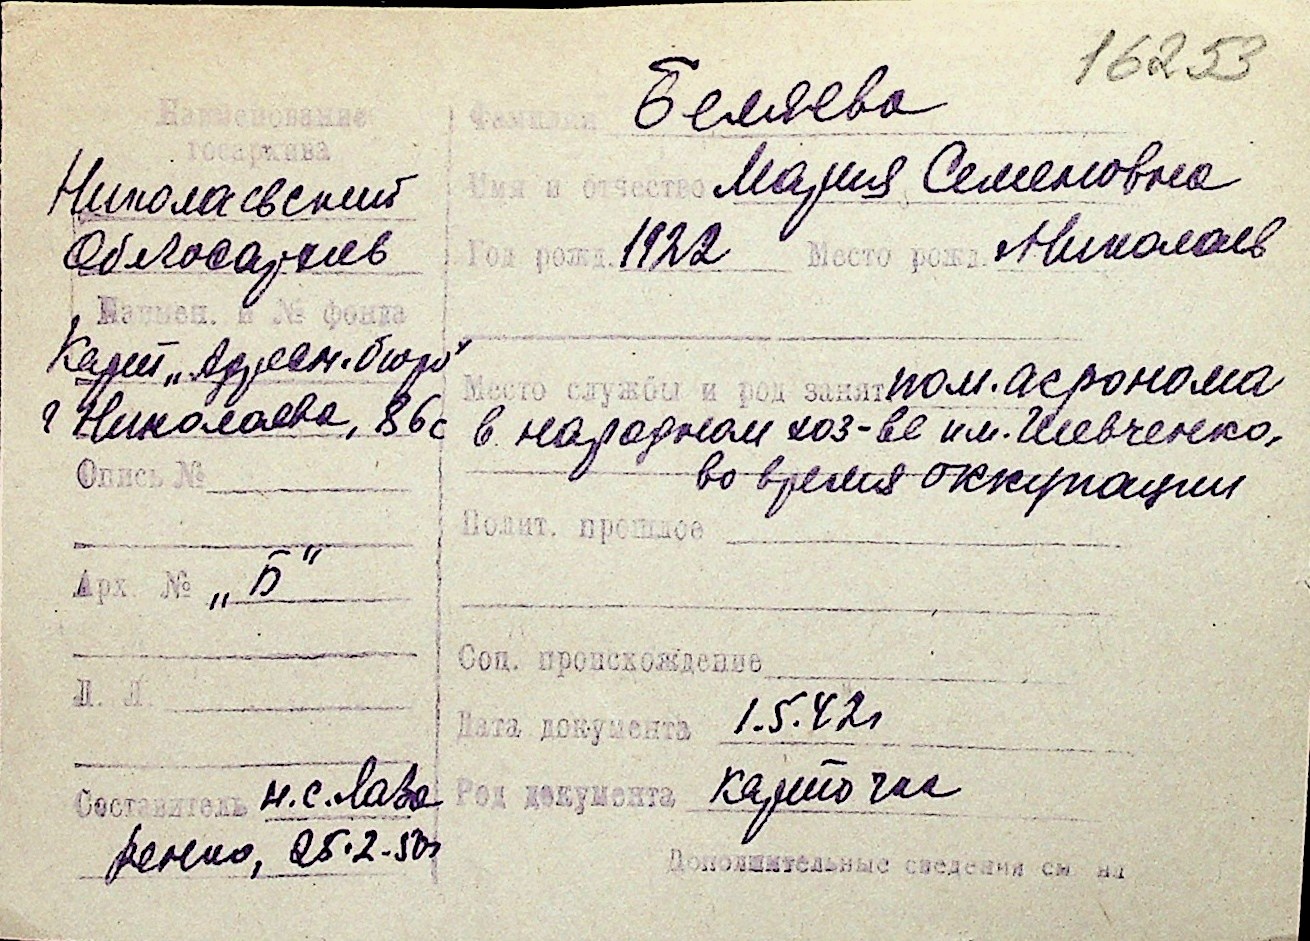 16253
Наименование
госархива
Николаевский
Облгосархив
Наимен. и № фонда
Карт „Адресн. бюро"
г Николаева, 86с
Опись №
Арх. № „Б"
Л. Л.
Составитель н.с. Лаза
ренко, 25.2.50г
Фамилия Беляева
Имя и отчество Мария Семеновна
Год рожд. 1922 Место рожд. Николаев
Место службы и род занят пом. агронома
в народном хоз-ве им. Шевченко,
во время оккупации
Полит. прошлое
Соц. происхождение
Дата документа 1.5.42г
Род документа карточка
Дополнительные сведения см на